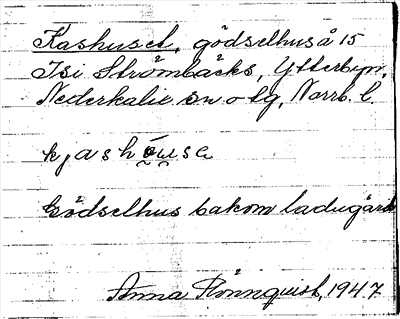 Kashuset, gödselhus å 15
Isi Strömbäcks, Ytterbyn,
Nederkalix sn o tg, Norrb. l.
kjashöuse
Gödselhus bakom ladugård
Anna Rönnquist, 1947